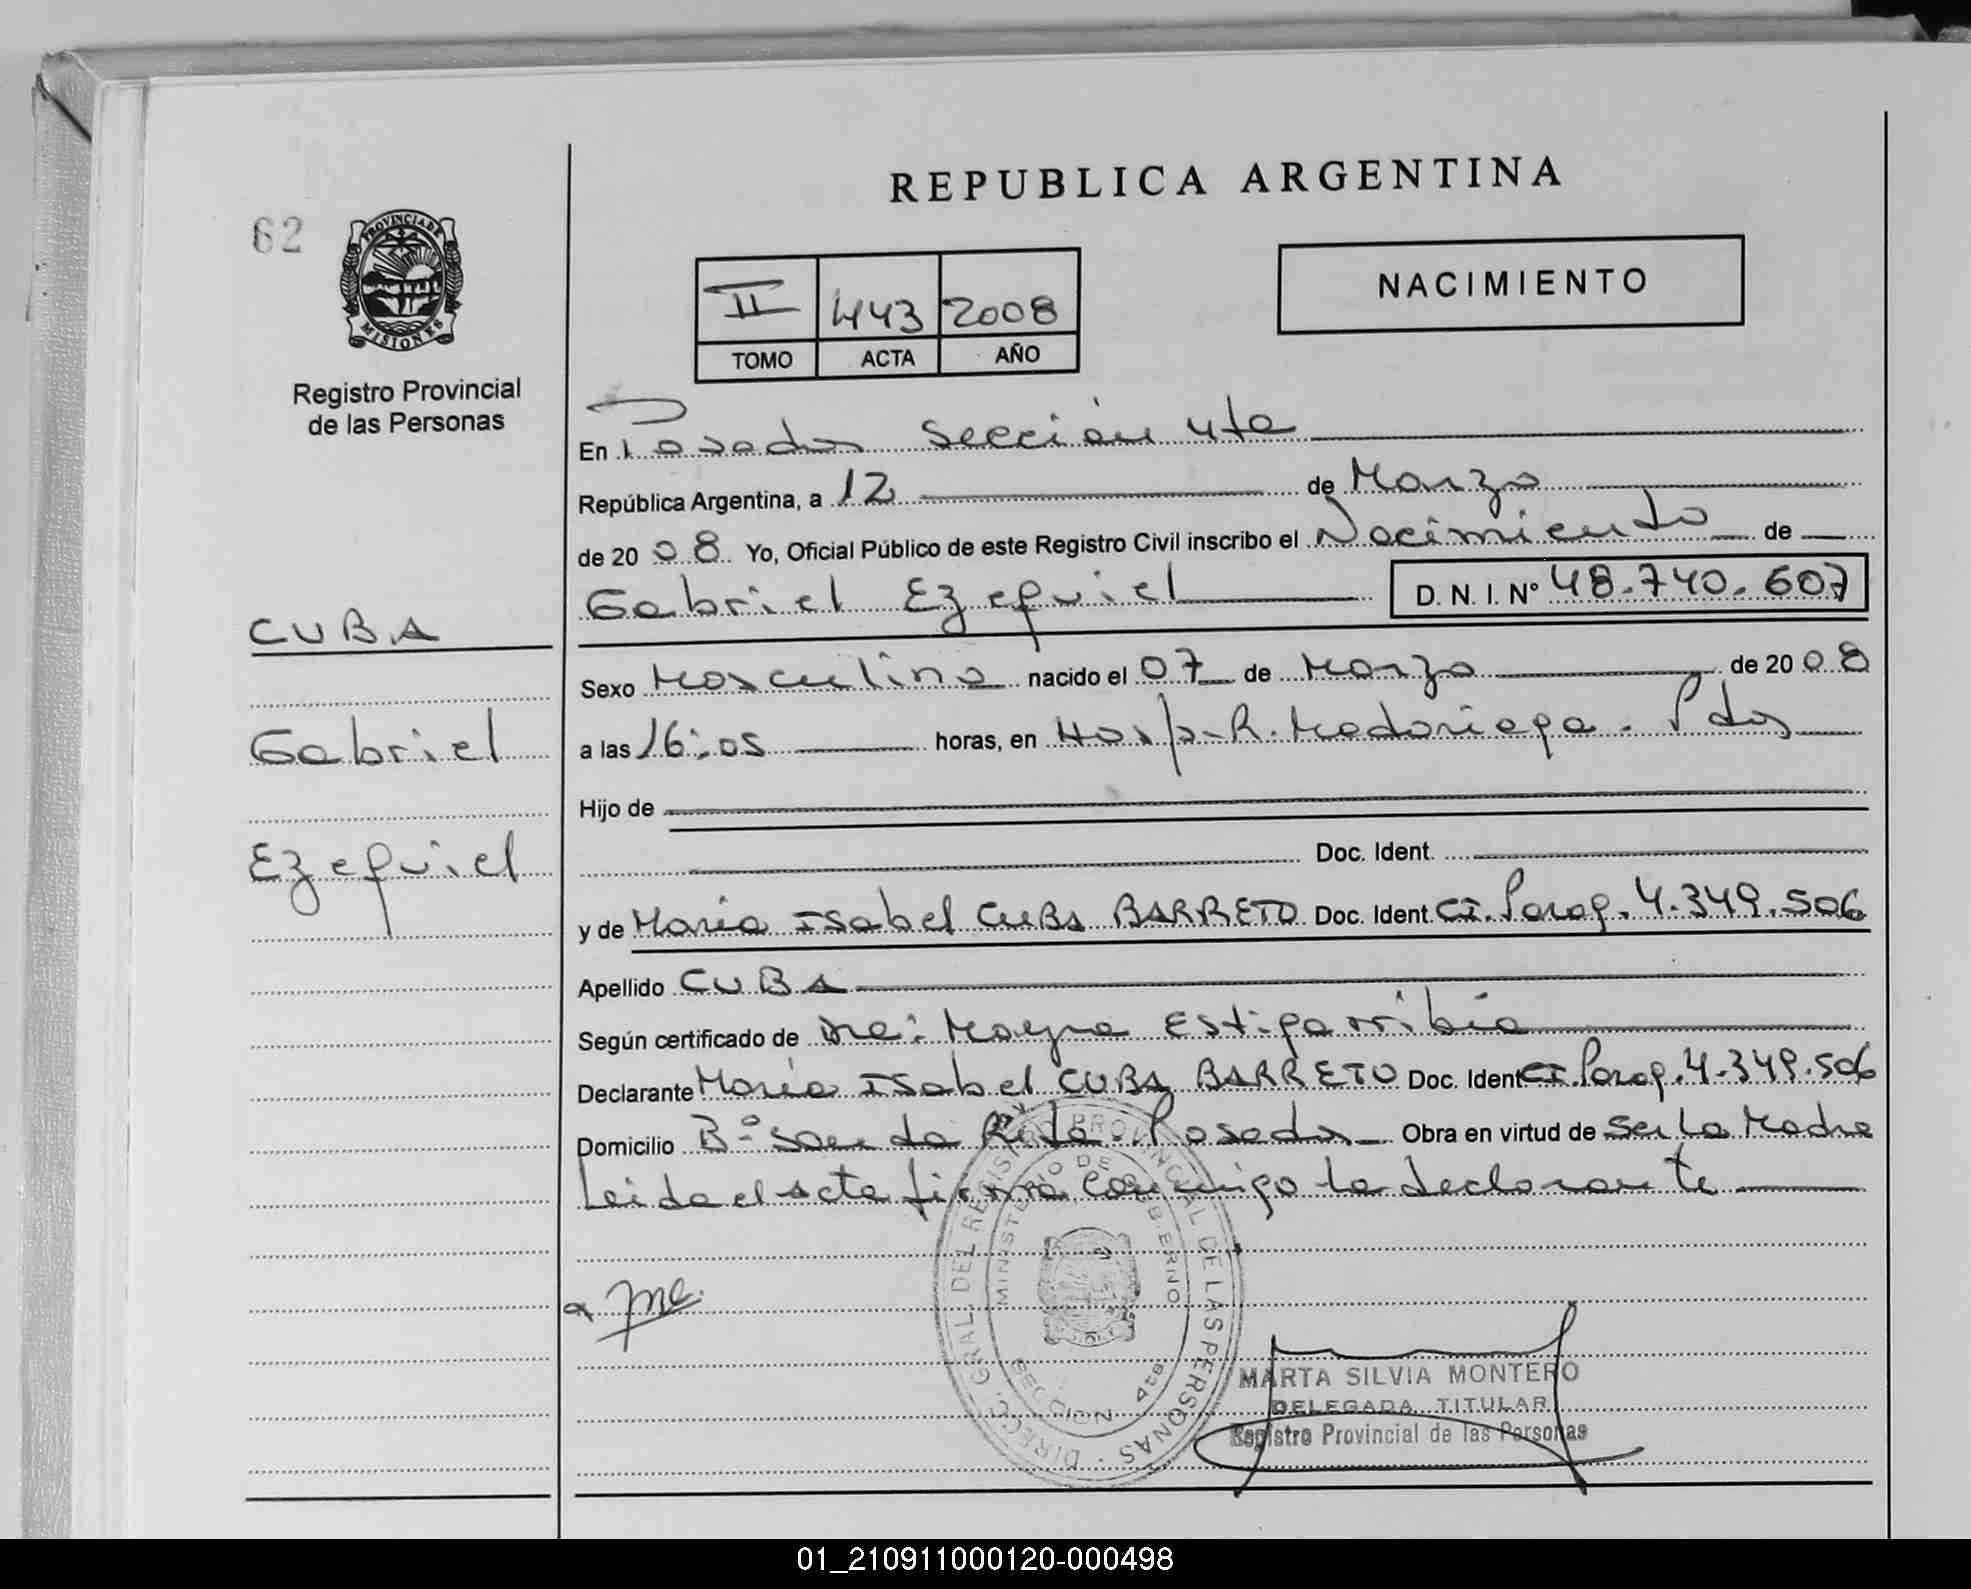 REPUBLICA ARGENTINA
62
PROVINCIA DE
MISIONES
Registro Provincial
de las Personas
II 443 2008
TOMO ACTA AÑO
NACIMIENTO
En Posadas Sección 4ta
República Argentina, a 12 de Marzo
de 2008 Yo, Oficial Público de este Registro Civil inscribo el Nacimiento de
Gabriel Ezequiel D. N. I. Nº 48.740.607
CUBA
Gabriel
Ezequiel
Sexo Masculino nacido el 07 de Marzo de 2008
a las 16:05 horas, en Hosp. R. Madariaga. Pdas
Hijo de
Doc. Ident.
y de María Isabel CUBA BARRETO Doc. Ident. CI. Parag. 4.349.506
Apellido CUBA
Según certificado de Dra: Mayra Estigarribia
Declarante María Isabel CUBA BARRETO Doc. Ident CI. Parag. 4.349.506
Domicilio Bº Santa Rita. Posadas Obra en virtud de Ser la Madre
Leída el acta firma conmigo la declarante
DIRECC. GRAL. DEL REGISTRO PROVINCIAL DE LAS PERSONAS
MINISTERIO DE GOBIERNO
SECCION 4ta
MARTA SILVIA MONTERO
DELEGADA TITULAR
Registro Provincial de las Personas
01_210911000120-000498